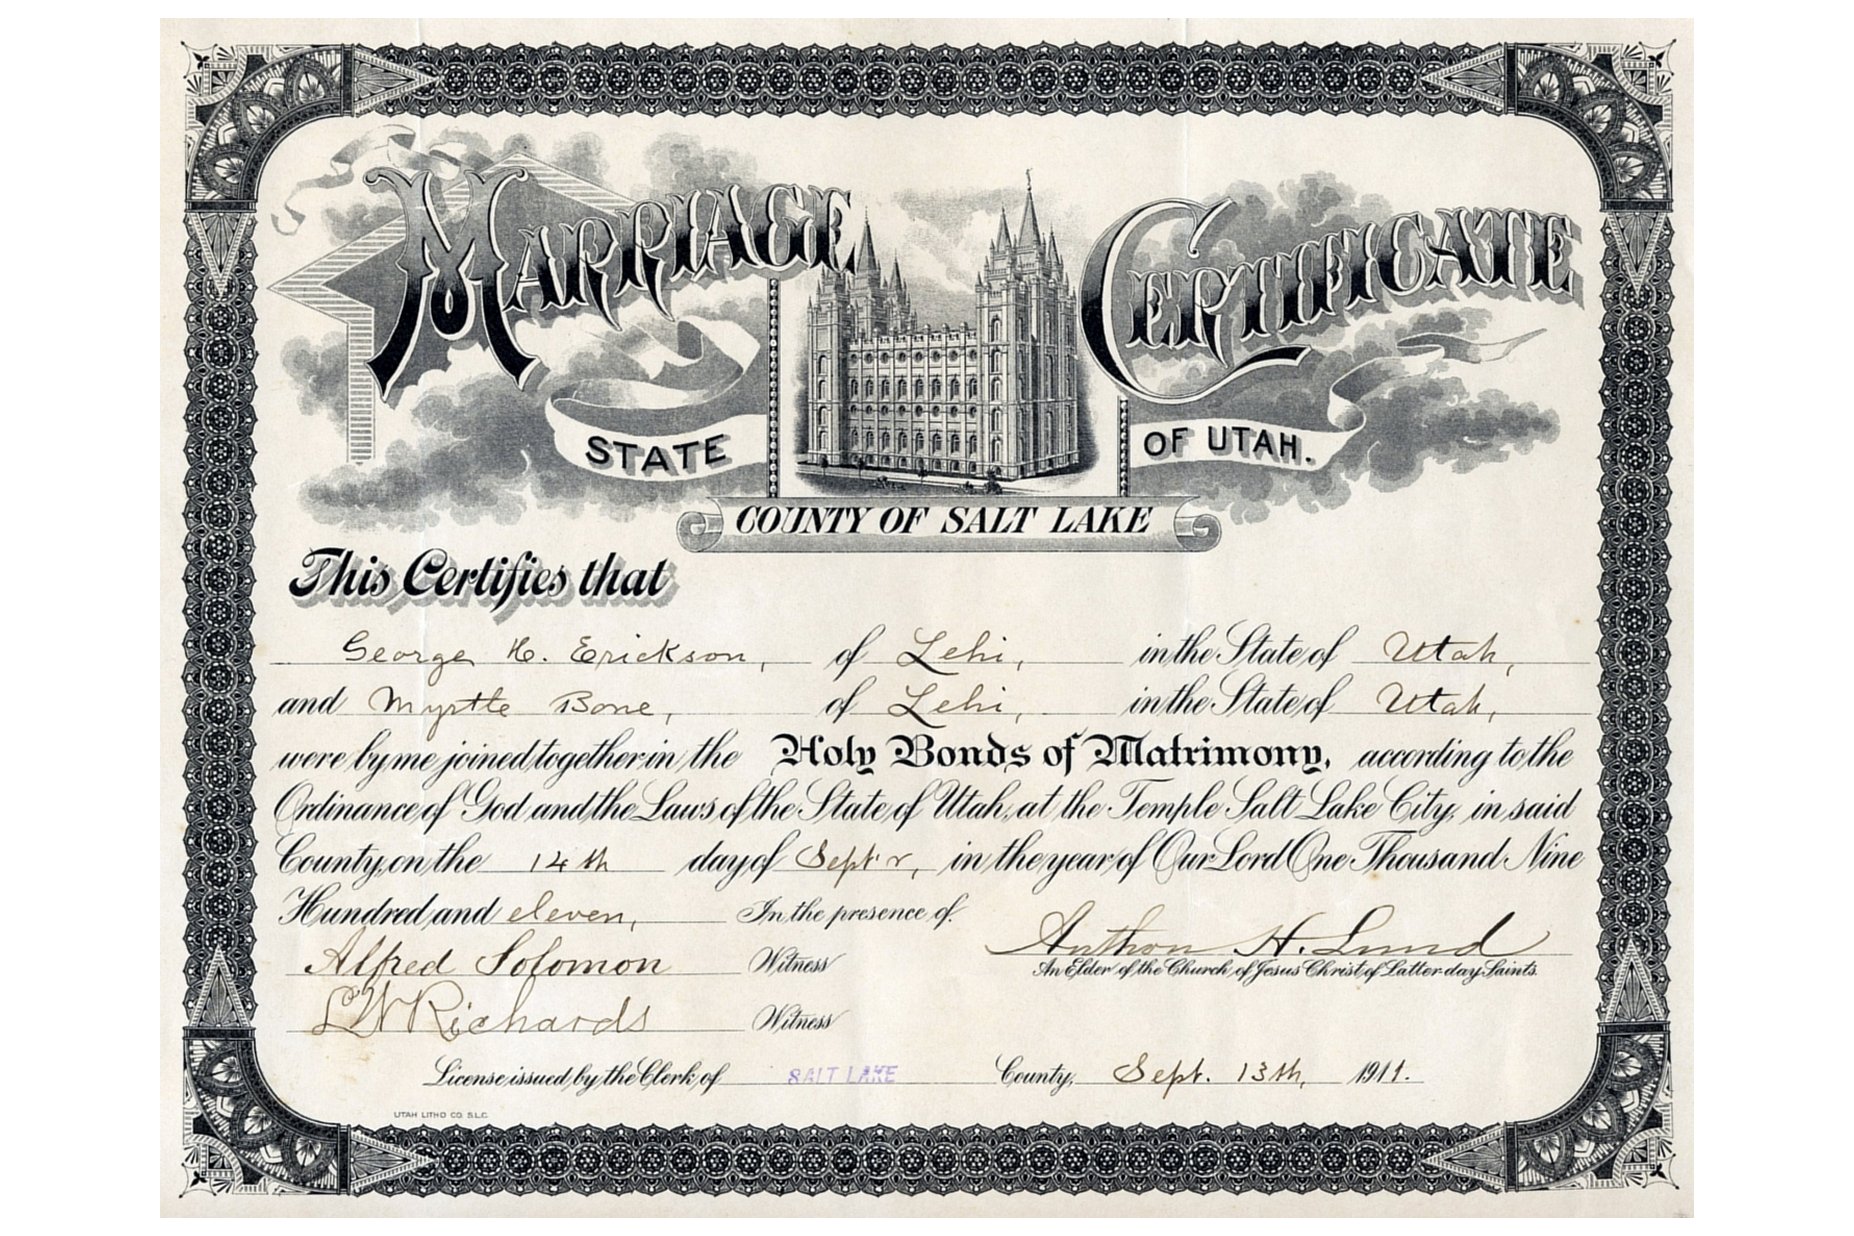 MARRIAGE CERTIFICATE
STATE OF UTAH.
COUNTY OF SALT LAKE
This Certifies that
George H. Erickson, of Lehi, in the State of Utah,
and Myrtle Bone, of Lehi, in the State of Utah,
were by me joined together in the Holy Bonds of Matrimony, according to the
Ordinance of God and the Laws of the State of Utah, at the Temple Salt Lake City, in said
County, on the 14th day of Sept'r, in the year of Our Lord One Thousand Nine
Hundred and eleven, In the presence of.
Anthon H. Lund
Alfred Solomon Witness
An Elder of the Church of Jesus Christ of Latter-day Saints.
L W Richards Witness
License issued by the Clerk of SALT LAKE County, Sept. 13th, 1911.
UTAH LITHO CO. S.L.C.